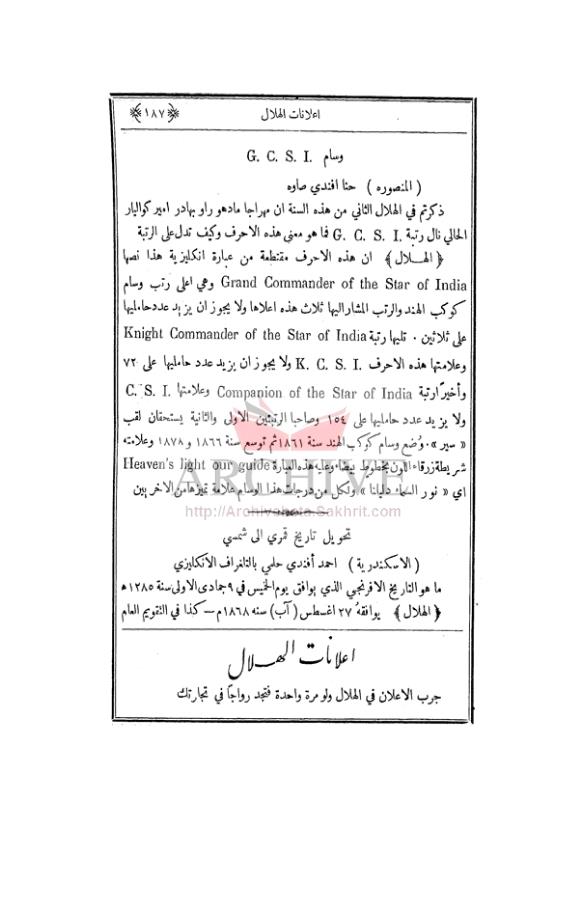 اعلانات الهلال
﴿١٨٧﴾
وسام G. C. S. I.
( المنصوره ) حنا افندي صاوه
ذكرتم في الهلال الثاني من هذه السنة ان مهراجا مادهو راو بهادر امير كواليار
الحالي نال رتبة G. C. S. I. فما هو معنى هذه الاحرف وكيف تدل على الرتبة
﴿الهـلال﴾ ان هذه الاحرف مقتطعة من عبارة انكليزية هذا نصها
Grand Commander of the Star of India وهي اعلى رتب وسام
كوكب الهند والرتب المشار اليها ثلاث هذه اعلاها ولا يجوز ان يزيد عدد حامليها
على ثلاثين . تليها رتبة Knight Commander of the Star of India
وعلامتها هذه الاحرف K. C. S. I. ولا يجوز ان يزيد عدد حامليها على ٧٢
وأخيرًا رتبة Companion of the Star of India وعلامتها C. S. I.
ولا يزيد عدد حامليها على ١٥٤ وصاحبا الرتبتين الاولى والثانية يستحقان لقب
« سير » . وُضع وسام كوكب الهند سنة ١٨٦١ ثم توسع سنة ١٨٦٦ و ١٨٧٨ وعلامته
شريطة زرقاء اللون بخطوط بيضاء وعليه هذه العبارة Heaven's light our guide
اي « نور السماء دليلنا » ولكل من درجات هذا الوسام علامة تميزها من الاخريين
ARCHIVE
http://Archivebeta.Sakhrit.com
تحويل تاريخ قمري الى شمسي
( الاسكندرية ) احمد أفندي حلمي بالتلغراف الانكليزي
ما هو التاريخ الافرنجي الذي يوافق يوم الخميس في ٩ جمادى الاولى سنة ١٢٨٥ ه
﴿الهلال﴾ يوافقهُ ٢٧ اغسطس ( آب ) سنه ١٨٦٨م — كذا في التقويم العام
اعلانات الهـلال
جرب الاعلان في الهلال ولو مرة واحدة فتجد رواجًا في تجارتك